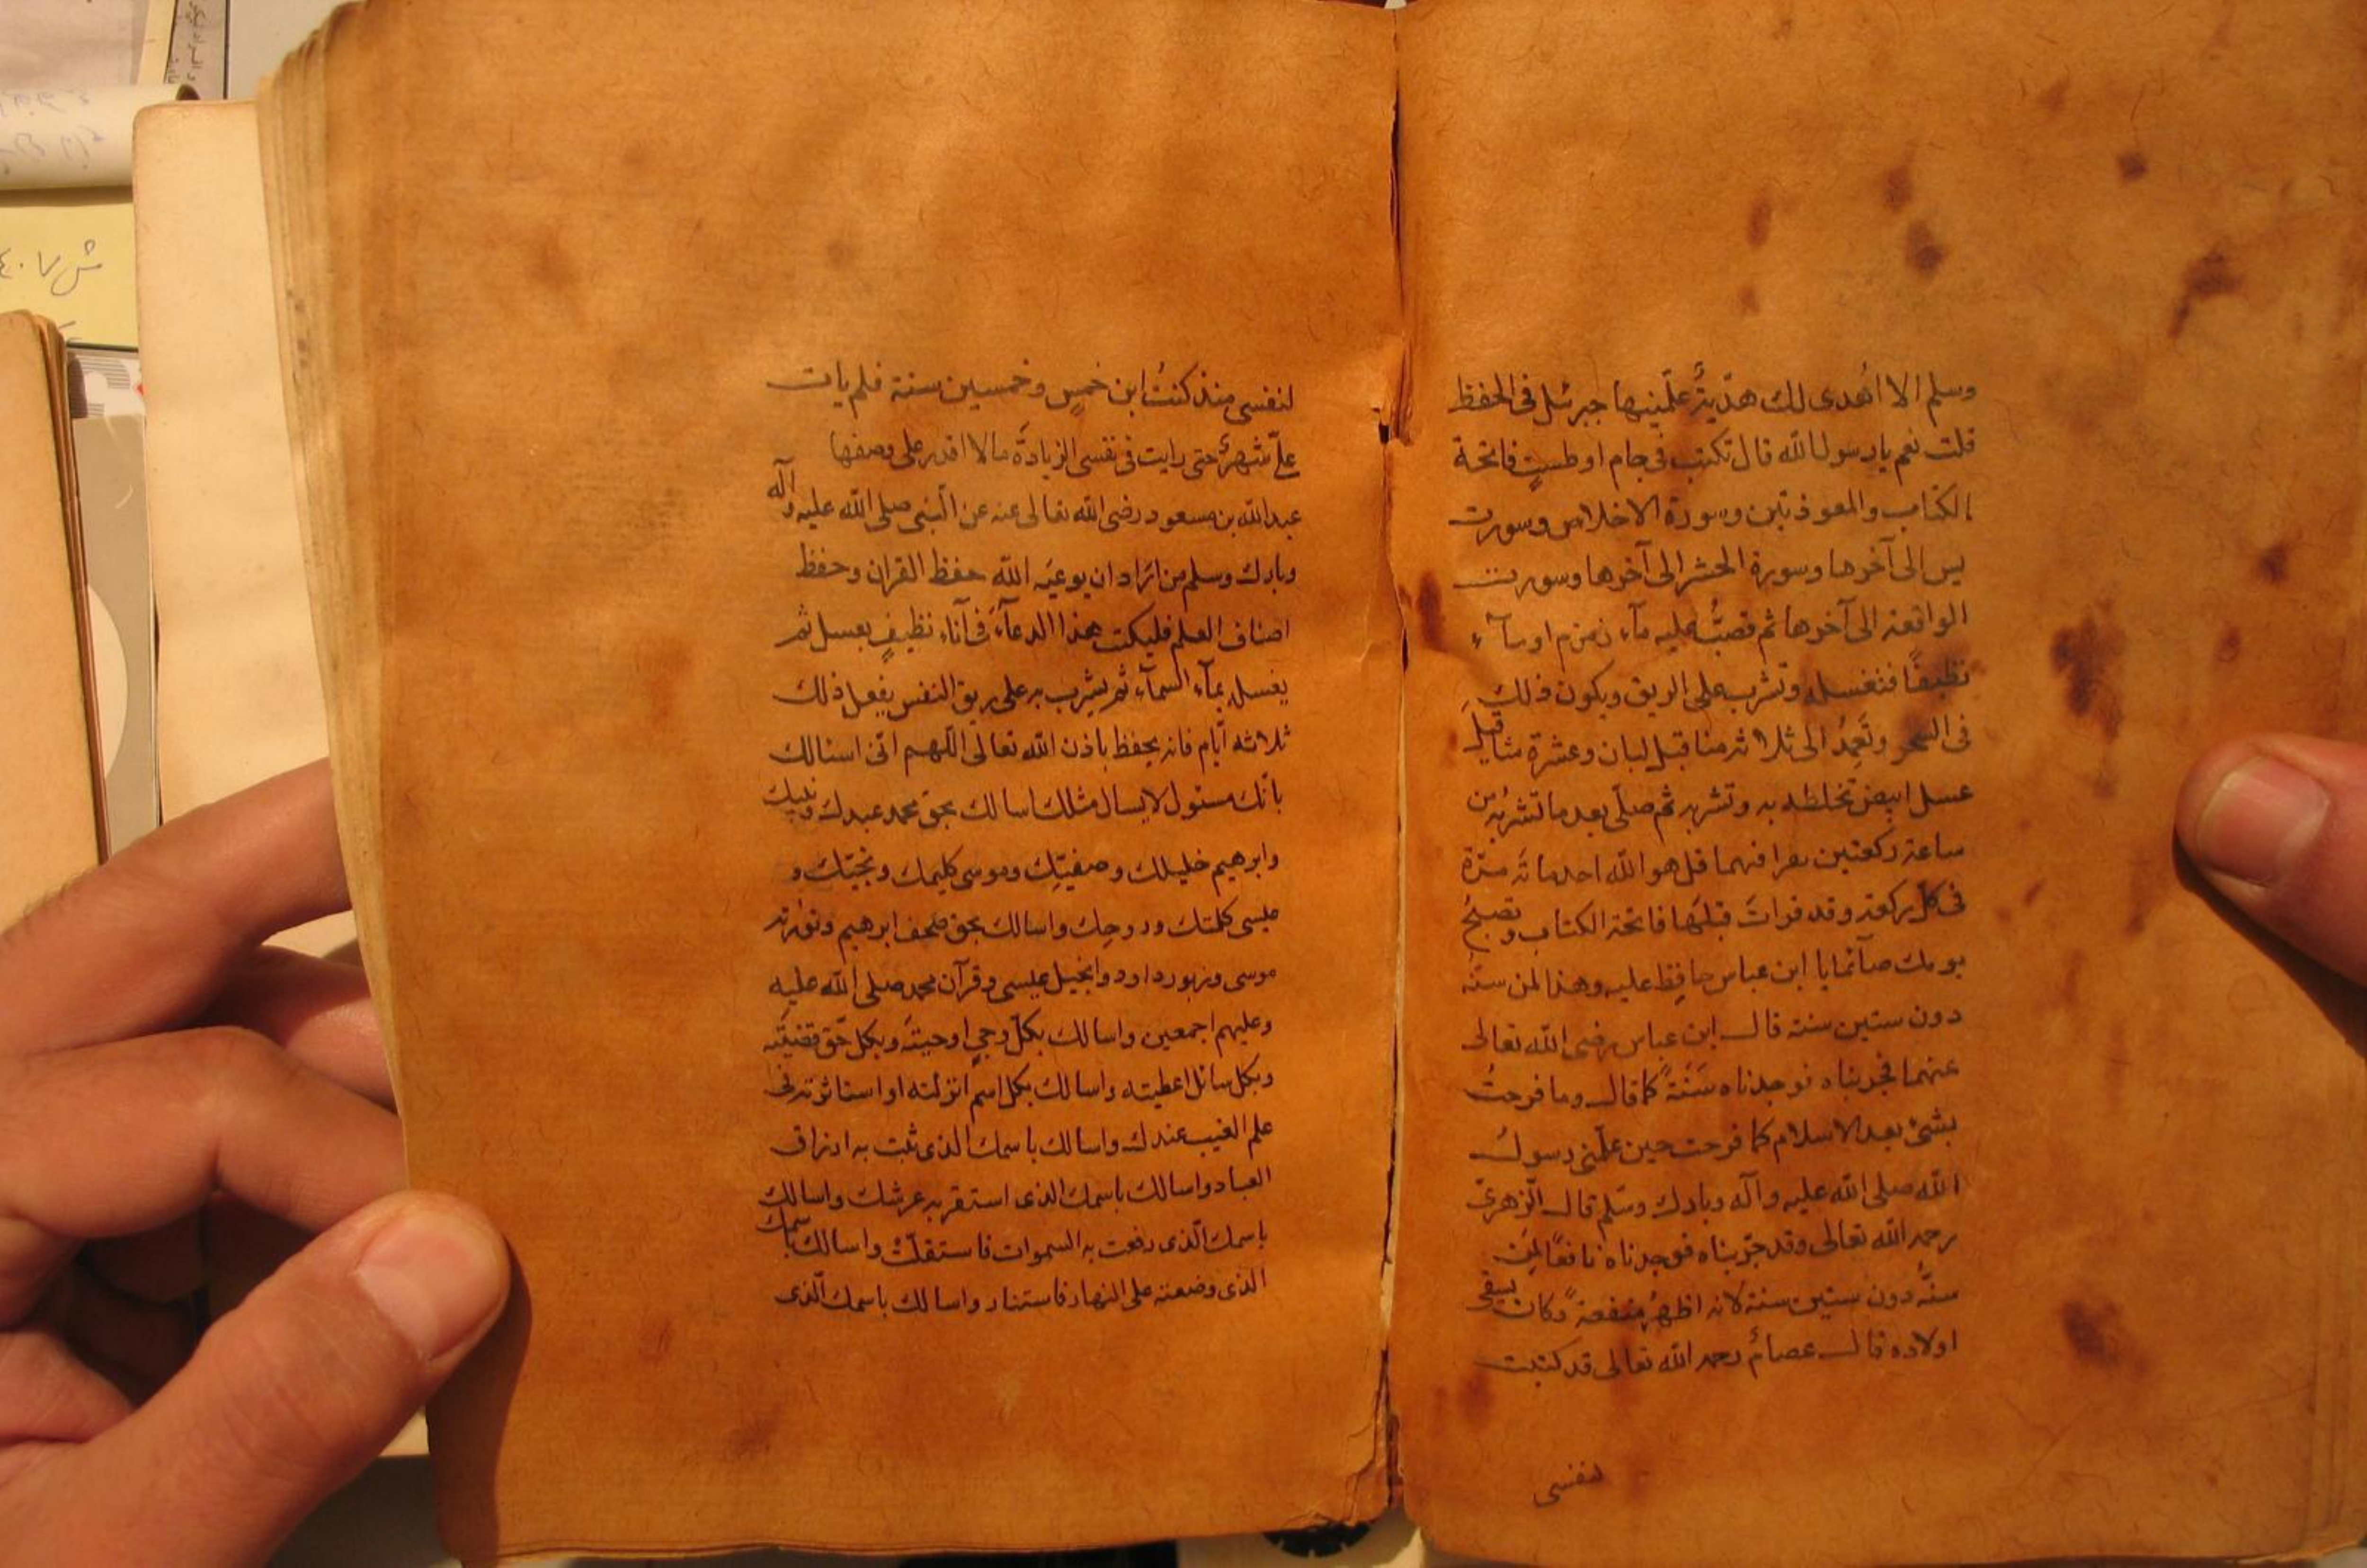 وسلم الا اُهدى لك هدّيةً علّمنيها جبرئل فى الحفظ
قلت نعم يا رسول الله قال تكتب فى جام او طستٍ فاتحة
الكتاب والمعوذتين وسورة الاخلاص وسورت
يس الى آخرها وسورة الحشر الى آخرها وسورت
الواقعة الى آخرها ثم تصبُّ عليه مآء زمزم او مآء
نظيفًا فتغسله وتشربه على الريق ويكون ذلك
فى السحر وتَعمِدُ الى ثلاثة مثاقيل لبان وعشرة مثاقيل
عسل ابيض تخلطه به وتشربه ثم صلّى بعد ما تشربُه من
ساعة ركعتين تقرا فيهما قل هو الله احد مائة مرّة
فى كل ركعة وقد قرات قبلها فاتحة الكتاب وتصبحُ
يومك صآئما يا ابن عباس حافِظ عليه وهذا لمن سنّه
دون ستين سنة قال ابن عباس رضى الله تعالى
عنهما فجربناه فوجدناه سَنَةً كما قال وما فرحتُ
بشئ بعد الاسلام كما فرحت حين علّمنى رسولُ
الله صلى الله عليه وآله وبارك وسّلم قال الّزهرىّ
رحمه الله تعالى وقد جرّبناه فوجدناه نافعًا لمَن
سنّهُ دون ستين سنة لانه اظهرُ منفعةً وكان يسقى
اولاده قال عصامٌ رحمه الله تعالى قد كتبت
لنفسى
لنفسى منذ كنتُ ابن خمسٍ وخمسين سنة فلم يات
علىّ شهرٌ حتى رايت فى نفسى الزيادةَ ما لا اقدر على وصفها
عبد الله بن مسعود رضى الله تعالى عنه عن الّنبى صلى الله عليه وآله
وبارك وسلم من ارَاد ان يوعيَه الله حفظ القران وحفظ
اصناف العلم فليكتب هذا الدعآءَ فى آناء نظيفٍ بعسل ثم
يغسله بمآء السمآء ثم يشرب به على ريق النفس يفعل ذلك
ثلاثه اّيام فانه يحفظ باذن الله تعالى الّلهم اّنى اسئالك
بأنّك مسئول لا يسال مثلك اسالك بحق محمد عبدك ونبيك
وابرهيم خليلك وصفيّكِ وموسى كليمك ونجيّك و
عيسى كلمتك وروحِك واسالك بحق صحف ابرهيم وتوٰرته
موسى وزبور داود وانجيل عيسى وقرآن محمد صلى الله عليه
وعليهم اجمعين واسالك بكلّ وحىٍ اوحيتَه وبكل حّق قضيَته
وبكل سائل اعطيته واسالك بكل اسم انزلته او استاثرته فى
علم الغيب عندك واسالك باسمك الذى ثبت به ارزاق
العباد واسالك باسمك الذى استقر به عرشك واسالك
باسمك اّلذى رفعت به السموات فاستقلّت واسالك باسمك
الّذى وضعته على النهار فاستنار واسالك باسمك الّذى